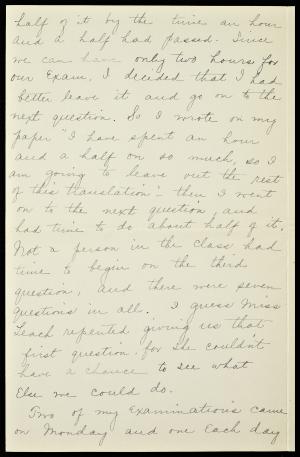 half of it by the time an hour
and a half had passed. Since
we can have only two hours for
our Exam, I decided that I had
better leave it and go on to the
next question. So I wrote on my
paper "I have spent an hour
and a half on so much, so I
am going to leave out the rest
of this translation." then I went
on to the next question and
had time to do about half of it.
Not a person in the class had
time to begin on the third
question, and there were seven
questions in all. I guess Miss
Leach repented giving us that
first question, for she couldn't
have a chance to see what
Else we could do.
Two of my Examinations came
on Monday and one Each day